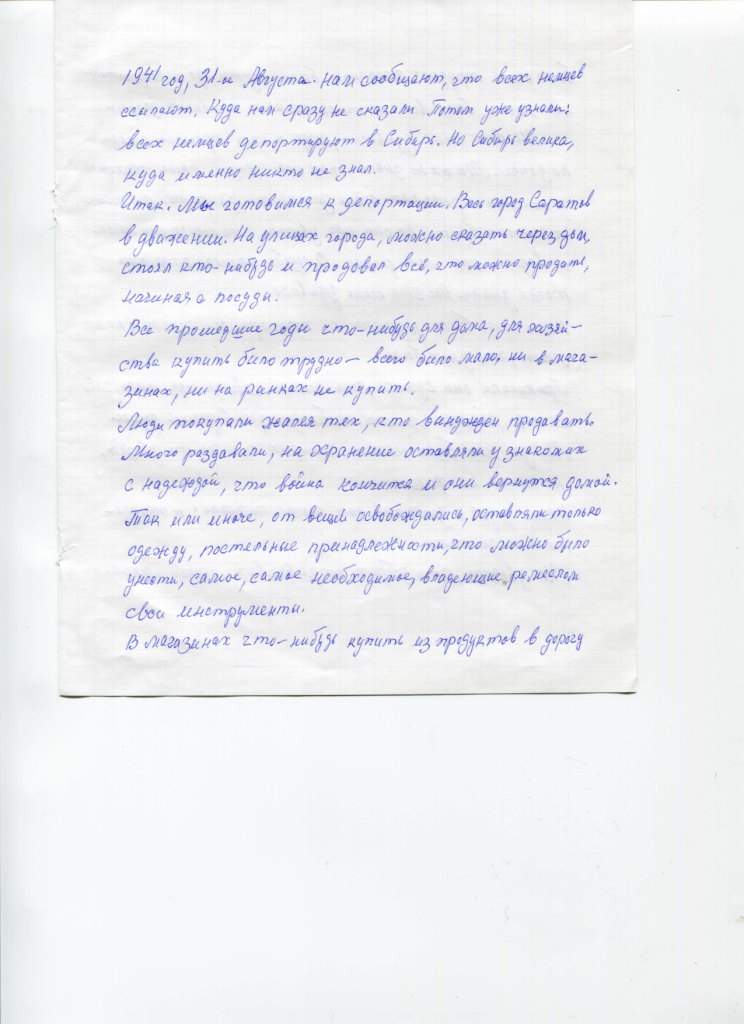 1941 год, 31-е Августа. Нам сообщают, что всех немцев
ссылают. Куда нам сразу не сказали Потом уже узнали:
всех немцев депортируют в Сибирь. Но Сибирь велика,
куда именно никто не знал.
Итак. Мы готовимся к депортации. Весь город Саратов
в движении. На улицах города, можно сказать через дом,
стоял кто-нибудь и продовал всё, что можно продать,
начиная с посуды.
Все прошедшие годы что-нибудь для дома, для хозяй-
ства купить было трудно - всего было мало, ни в мага-
зинах, ни на рынках не купить.
Люди покупали жалея тех, кто вынужден продавать.
Много раздавали, на хранение оставляли у знакомих
с надеждой, что война кончится и они вернутся домой.
Так или иначе, от вещей освобождались, оставляли только
одежду, постельные принадлежности, что можно было
унести, самое, самое необходимое, владеющие ремеслом
свои инструменты.
В магазинах что-нибудь купить из продуктов в дорогу